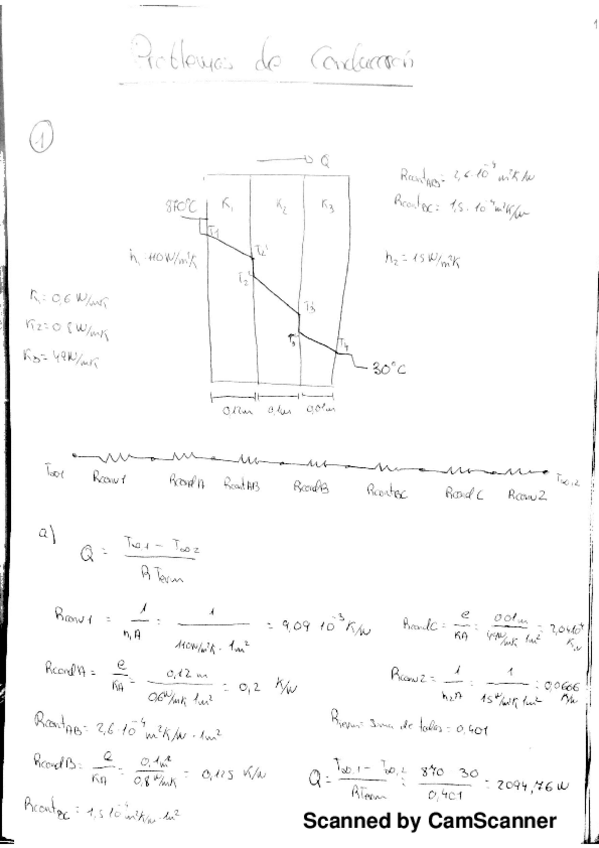 1
Problemas de Conducción
1
Q
Rcont AB = 2,6·10⁻⁴ m²K/W
Rcont BC = 1,5·10⁻⁴ m²K/W
870°C
K1 K2 K3
T1
h1 = 110 W/m²K
T2
T2'
h2 = 15 W/m²K
K1 = 0,6 W/mK
K2 = 0,8 W/mK
T3
T3'
T4
30°C
0,12m 0,1m 0,01m
T∞1 Rconv1 RcondA RcontAB RcondB RcontBC RcondC Rconv2 T∞,2
a) Q = T∞,1 - T∞2 / RTerm
Rconv1 = 1/h1A = 1/110W/m²K · 1m² = 9,09·10⁻³ K/W
RcondC = e/KA = 0,01m/49W/mK 1m² = 2,04·10⁻⁴ K/W
RcondA = e/KA = 0,12 m/0,6W/mK 1m² = 0,2 K/W
Rconv2 = 1/h2A = 1/15W/m²K 1m² = 0,0666 K/W
RcontAB = 2,6·10⁻⁴ m²K/W · 1m²
RTerm = Suma de todas = 0,401
RcondB = e/KA = 0,1m/0,8W/mK = 0,125 K/W
Q = T∞,1 - T∞,2/RTerm = 870 30/0,401 = 2094,76 W
RcontBC = 1,5·10⁻⁴ m²K/W · 1m²
Scanned by CamScanner